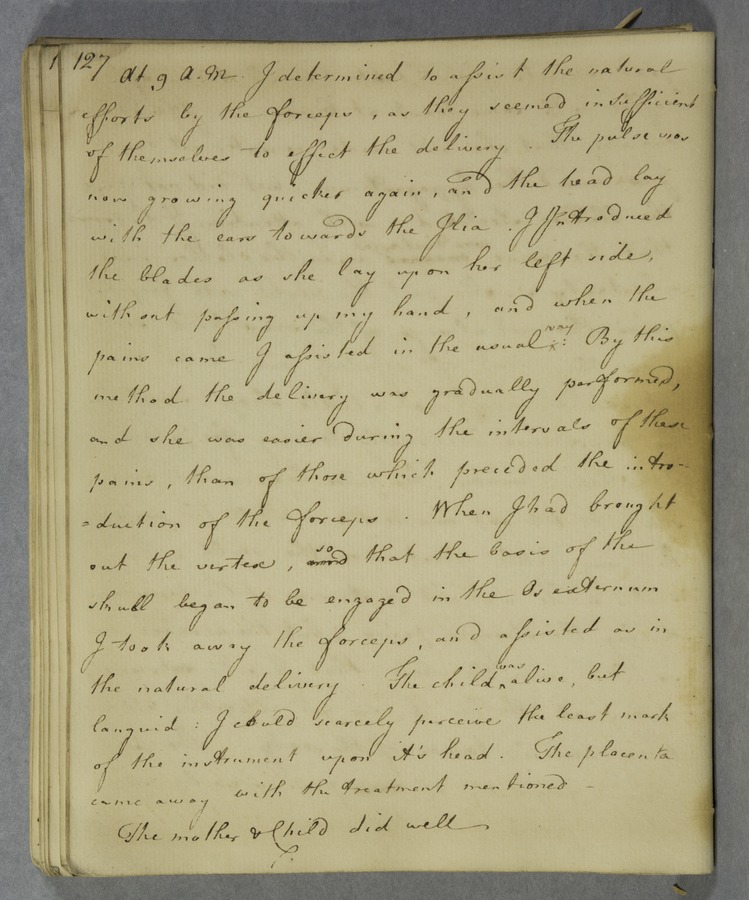 1 127
At 9 A.M. I determined to assist the natural
efforts by the forceps, as they seemed insufficient
of themselves to effect the delivery. The pulse was
now growing quicker again, and the head lay
with the ears towards the Ilia. I Introduced
the blades as she lay upon her left side,
without passing up my hand, and when the
way
pains came I assisted in the usual : By this
method the delivery was gradually performed,
and she was easier during the intervals of these
pains, than of those which preceded the intro-
=duction of the forceps. When I had brought
so
out the vertex, and that the basis of the
skull began to be engaged in the Os externum
I took away the forceps, and assisted as in
was
the natural delivery. The child ^ alive, but
languid: I could scarcely perceive the least mark
of the instrument upon it's head. The placenta
came away with the treatment mentioned -
The mother & Child did well